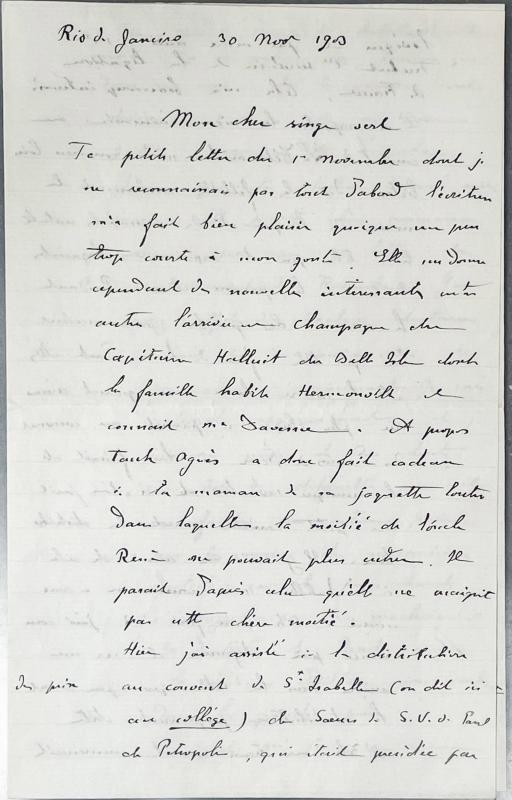 Rio de Janeiro 30 Nov 1903
Mon cher singe vert
Ta petite lettre du 1r novembre dont je
ne reconnaissais pas tout d'abord l'écriture
m'a fait bien plaisir quoique un peu
trop courte à mon goût. Elle me donne
cependant des nouvelles intéressantes entre
autres l'arrivée en Champagne du
Capitaine du Belle Isle dont
la famille habite Hermonville et
connait Me Davenne. A propos
tante Agnès a donc fait cadeau
à ta maman de sa jaquette loutre
dans laquelle la moitié de l'oncle
René ne pouvait plus entrer. Il
parait d'après cela qu'elle ne maigrit
pas cette chère moitié.
Hier j'ai assisté à la distribution
des prix au couvent de Ste Isabelle (on dit ici
au collège) de Soeurs de S.V. de Paul
de Petropolis, qui était présidée par